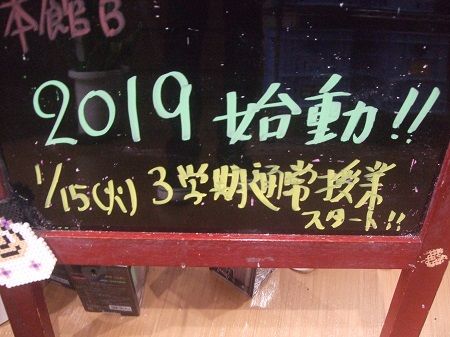 本館B
2019 始動!!
1/15(火) 3学期通常授業
スタート!!